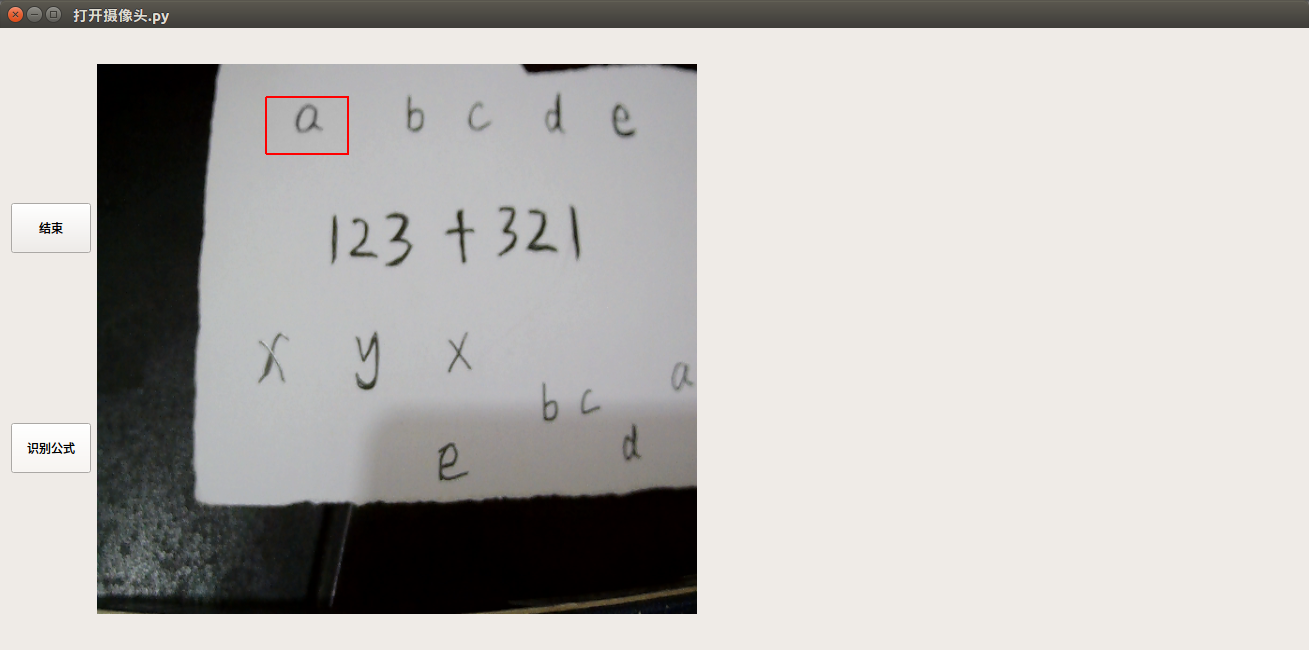 打开摄像头.py
结束
识别公式
a b c d e
123 + 321
x y x
a
b c
d
e